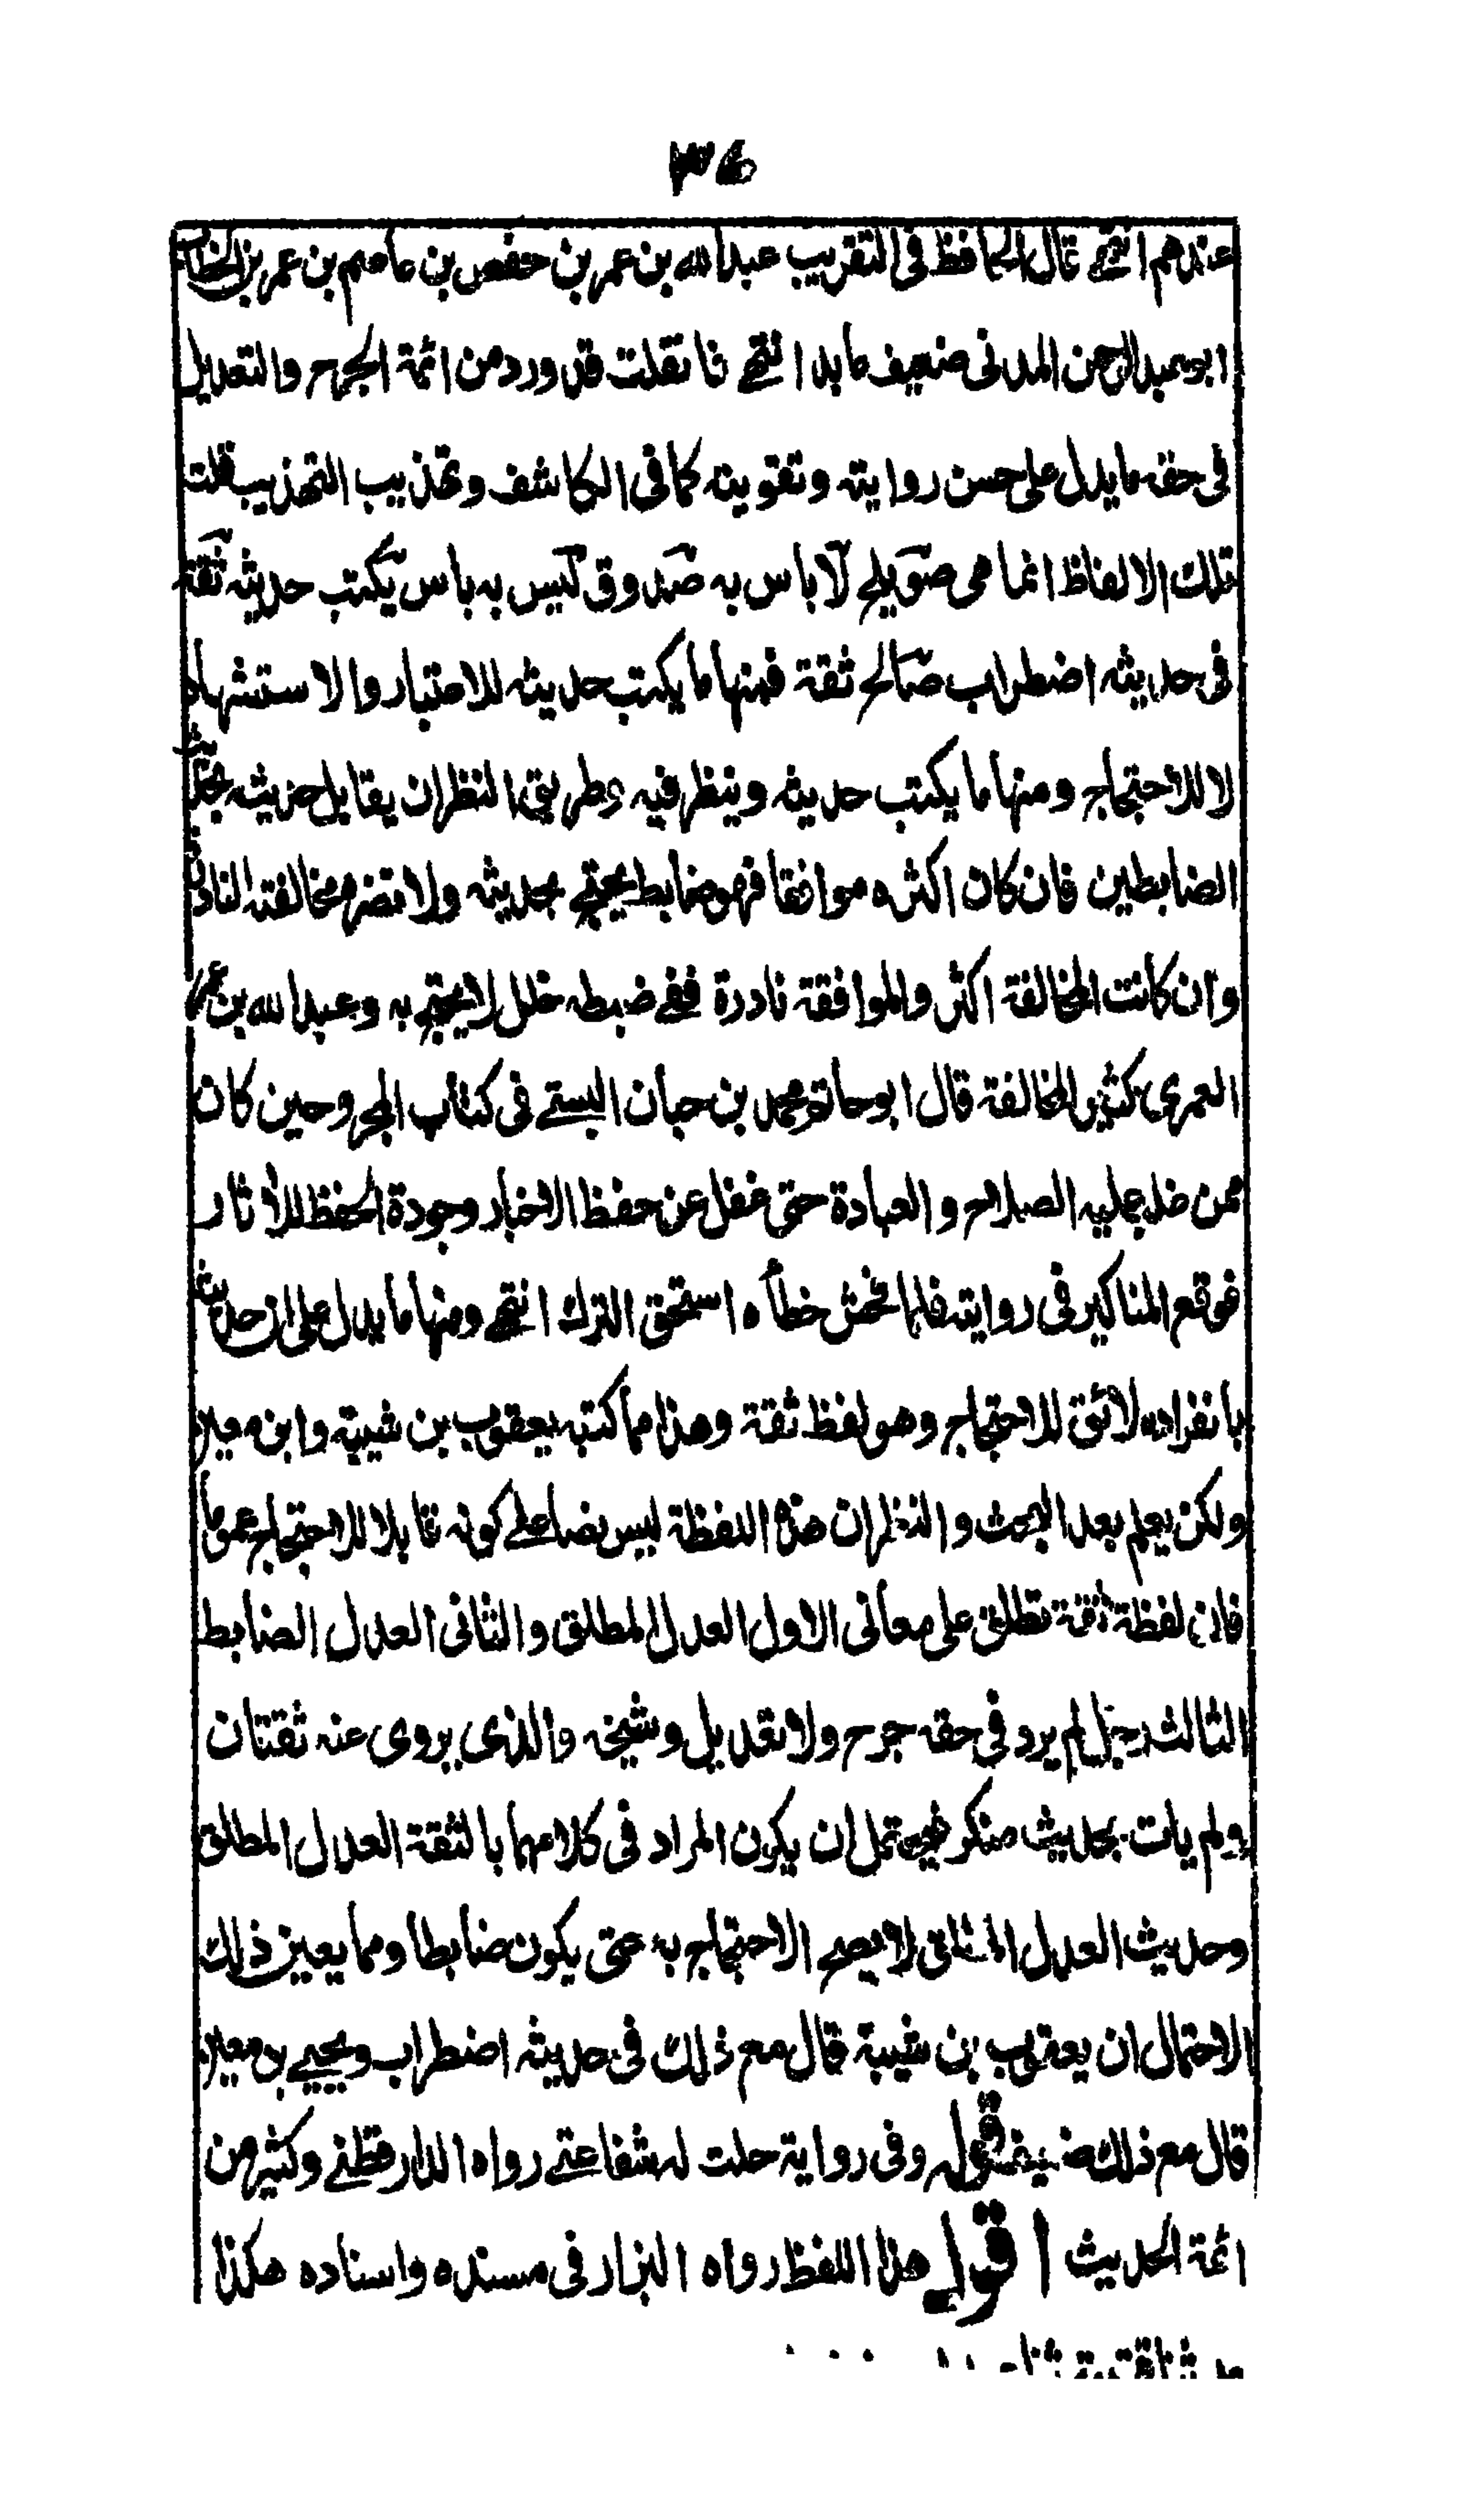 ٣٤
عندهم انتهى قال الحافظ فى التقريب عبد الله بن عمر بن حفص بن عاصم بن عمر بن الخطاب
ابو عبد الرحمن المدنى ضعيف عابد انتهى فان قلت قد ورد من ائمة الجرح والتعديل
فى حقه ما يدل على حسن روايته وتقويته كما فى الكاشف وتهذيب التهذيب قلت
تلك الالفاظ انما هى صويلح لا باس به صدوق ليس به باس يكتب حديثه ثقة
فى حديثه اضطراب صالح ثقة فمنها ما يكتب حديثه للاعتبار والاستشهاد
لا للاحتجاج ومنها ما يكتب حديثه وينظر فيه وطريق النظر ان يقابل حديثه بحديث
الضابطين فان كان اكثره موافقا فهو ضابط يحتج بحديثه ولا تضر مخالفته النادرة
وان كانت المخالفة اكثر والموافقة نادرة ففى ضبطه خلل لا يحتج به وعبد الله بن عمر
العمرى كثير المخالفة قال ابو حاتم محمد بن حبان البستى فى كتاب المجروحين كان
ممن غلب عليه الصلاح والعبادة حتى غفل عن حفظ الاخبار وجودة الحفظ للآثار
فوقع المناكير فى روايته فلما فحش خطأه استحق الترك انتهى ومنها ما يدل على ان حديثه
بانفراده لائق للاحتجاج وهو لفظ ثقة وهذا مما كتبه يعقوب بن شيبة وابن معين
ولكن يعلم بعد البحث والنظر ان هذه اللفظة ليس نصا على كونه قابلا للاحتجاج عموما
فان لفظة ثقة تطلق على معانى الاول العدل المطلق والثانى العدل الضابط
الثالث رجل لم يرد فى حقه جرح ولا تعديل وشيخه والذى يروى عنه ثقتان
ولم يات بحديث منكر فيحتمل ان يكون المراد فى كلامهما بالثقة العدل المطلق
وحديث العدل المطلق لا يصح الاحتجاج به حتى يكون ضابطا ومما يعين ذلك
الاحتمال ان يعقوب بن شيبة قال مع ذلك فى حديثه اضطراب ويحيى بن معين
قال مع ذلك ضعيف قوله وفى رواية حلت له شفاعتى رواه الدارقطنى وكثير من
ائمة الحديث اقول هذا اللفظ رواه البزار فى مسنده واسناده هكذا